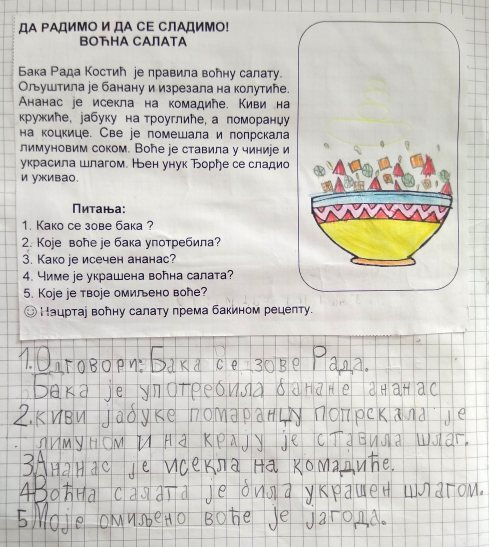 ДА РАДИМО И ДА СЕ СЛАДИМО!
ВОЋНА САЛАТА
Бака Рада Костић је правила воћну салату.
Ољуштила је банану и изрезала на колутиће.
Ананас је исекла на комадиће. Киви на
кружиће, јабуку на троуглиће, а поморанџу
на коцкице. Све је помешала и попрскала
лимуновим соком. Воће је ставила у чиније и
украсила шлагом. Њен унук Ђорђе се сладио
и уживао.
Питања:
1. Како се зове бака ?
2. Које воће је бака употребила?
3. Како је исечен ананас?
4. Чиме је украшена воћна салата?
5. Које је твоје омиљено воће?
☺ Нацртај воћну салату према бакином рецепту.
1. Одговори: Бака се зове Рада.
Бака је употребила банане ананас
2. киви јабуке помаранџу попрскала је
лимуном и на крају је ставила шлаг.
3 Ананас је исекла на комадиће.
4 Воћна салата је била украшен шлагом.
5 Моје омиљено воће је јагода.